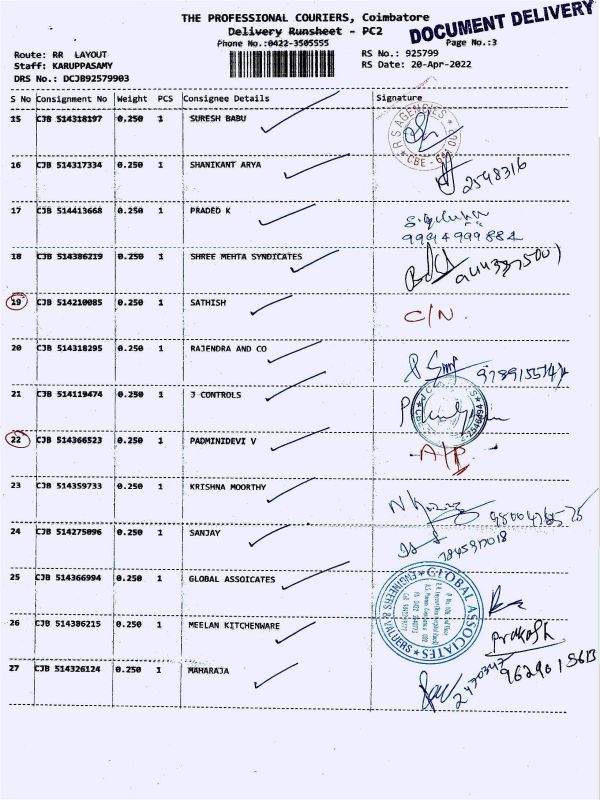 THE PROFESSIONAL COURIERS, Coimbatore
DOCUMENT DELIVERY
Delivery Runsheet - PC2
Phone No.:0422-3505555
Page No.:3
Route: RR LAYOUT
RS No.: 925799
Staff: KARUPPASAMY
RS Date: 20-Apr-2022
DRS No.: DCJB92579903
S No Consignment No Weight PCS Consignee Details Signature
15 CJB 514318197 0.250 1 SURESH BABU
R S AGENCIES
16 CJB 514317334 0.250 1 SHANIKANT ARYA 2598316
17 CJB 514413668 0.250 1 PRADED K
9994999884
18 CJB 514386219 0.250 1 SHREE MEHTA SYNDICATES
19 CJB 514210085 0.250 1 SATHISH C/N
20 CJB 514318295 0.250 1 RAJENDRA AND CO
21 CJB 514119474 0.250 1 J CONTROLS
22 CJB 514366523 0.250 1 PADMINIDEVI V A/P
23 CJB 514359733 0.250 1 KRISHNA MOORTHY
24 CJB 514275096 0.250 1 SANJAY
25 CJB 514366994 0.250 1 GLOBAL ASSOICATES
GLOBAL ASSOCIATES
ENGINEERS & VALUERS
26 CJB 514386215 0.250 1 MEELAN KITCHENWARE
Prakash
27 CJB 514326124 0.250 1 MAHARAJA